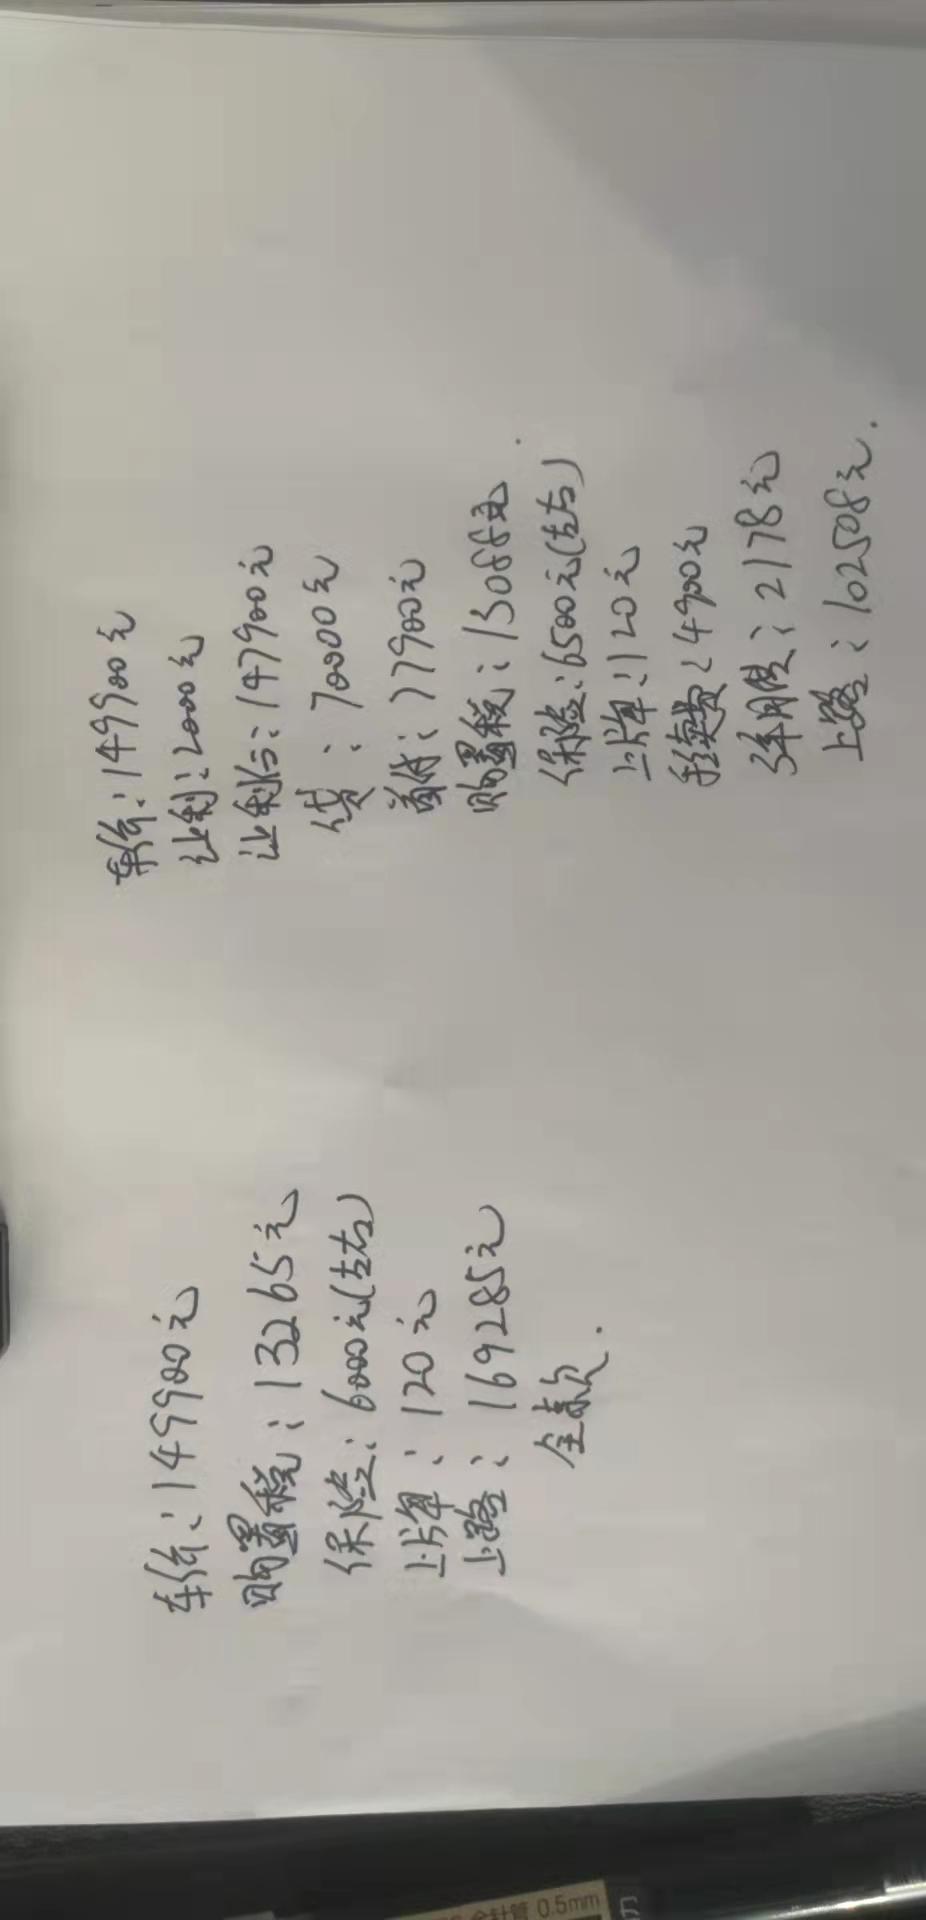 车价:149900元
购置税:13265元
保险:6000元(左右)
上牌:120元
上路:169285元
全款.
车价:149900元
让利:2000元
让利后:147900元
贷:70000元
首付:77900元
购置税:13088元.
保险:6500元(左右)
上牌:120元
手续费:4900元
3年月供:2178元
上路:102508元.
针管 0.5mm